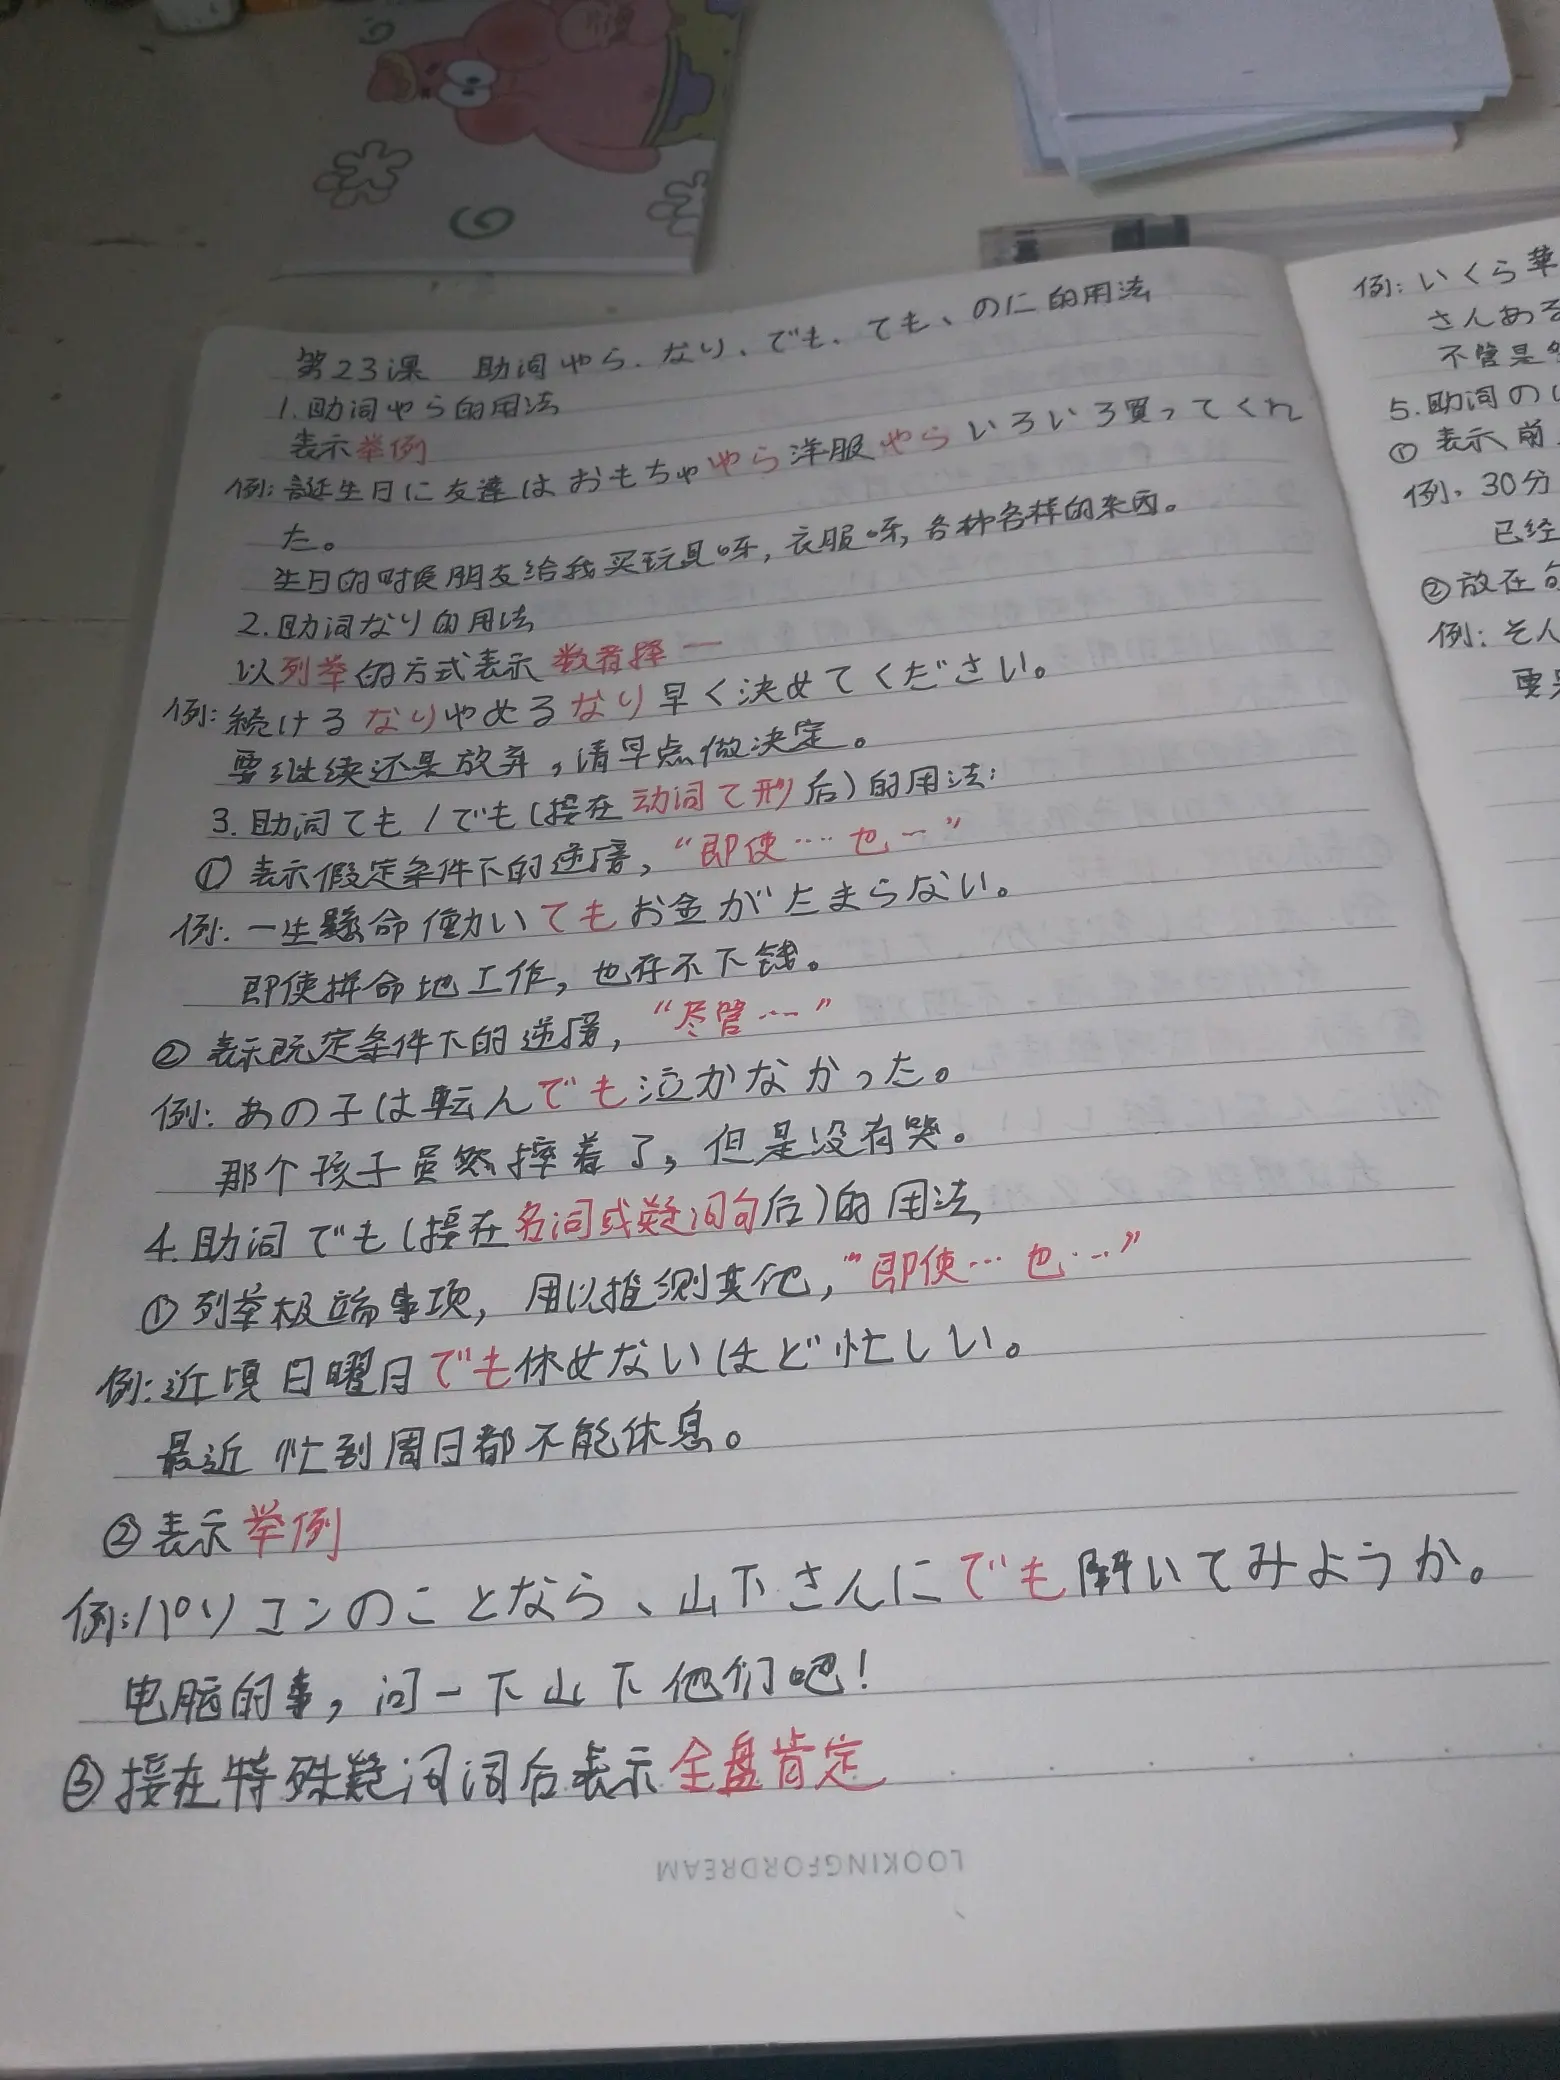 第23课 助词やら、なり、でも、ても、のに的用法
1.助词やら的用法
表示举例
例:誕生日に友達はおもちゃやら洋服やらいろいろ買ってくれ
た。
生日的时候朋友给我买玩具呀,衣服呀,各种各样的东西。
2.助词なり的用法
以列举的方式表示数者择一
例:続けるなりやめるなり早く決めてください。
要继续还是放弃,请早点做决定。
3.助词ても/でも(接在动词て形后)的用法:
①表示假定条件下的逆接,“即使……也…”
例:一生懸命働いてもお金がたまらない。
即使拼命地工作,也存不下钱。
②表示既定条件下的逆接,“尽管……”
例:あの子は転んでも泣かなかった。
那个孩子虽然摔着了,但是没有哭。
4.助词でも(接在名词或疑问句后)的用法
①列举极端事项,用以推测其他,“即使…也…”
例:近頃日曜日でも休めないほど忙しい。
最近忙到周日都不能休息。
②表示举例
例:パソコンのことなら、山下さんにでも聞いてみようか。
电脑的事,问一下山下他们吧!
③接在特殊疑问词后表示全盘肯定
LOOKINGFORDREAM
例:いくら華
さんある
不管是
5.助词の
①表示前
例.30分
已经
②放在句
例:そん
要